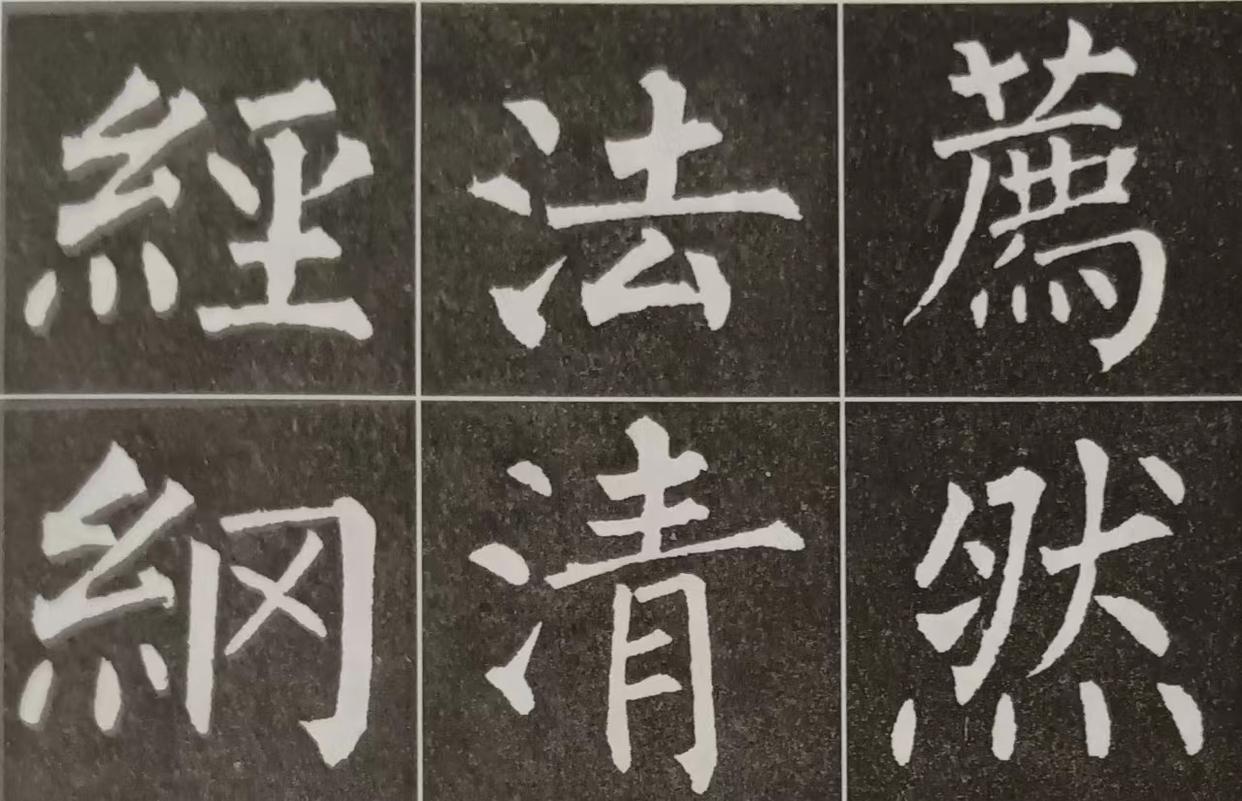 薦然
法清
經䋄